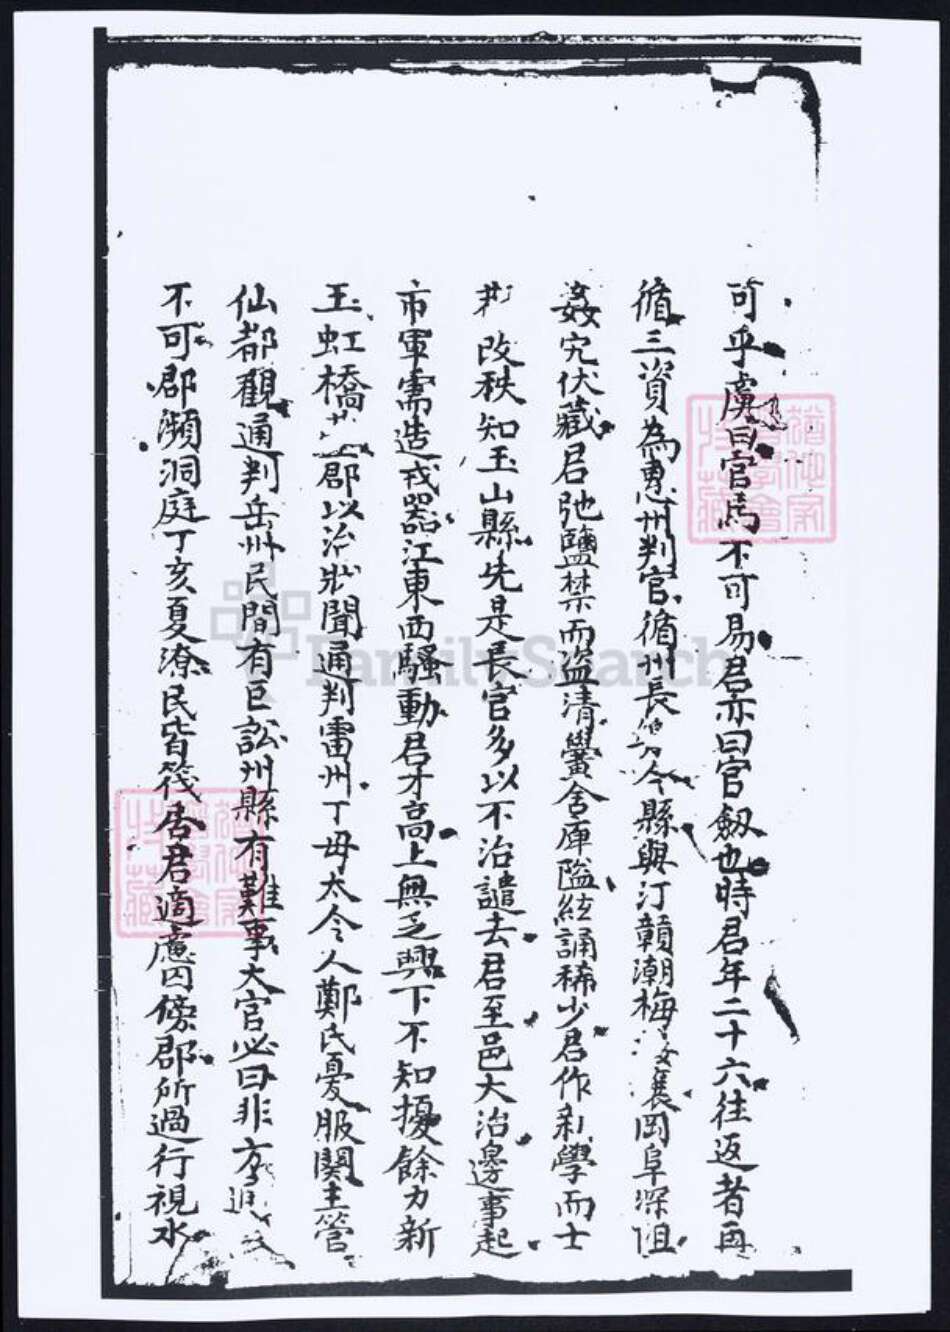 可乎虜曰官馬不可易君亦曰官劔也時君年二十六往返者再
循三資為惠州判官循州長今縣與汀贛潮梅接壤岡阜深阻
姦宄伏藏君弛鹽禁而盜清黌舍庳隘絃誦稀少君作新學而士
改秩知玉山縣先是長官多以不治譴去君至邑大治邊事起
市軍需造戎器江東西騷動君才高上無乏興下不知擾餘力新
玉虹橋郡以治狀聞通判雷州丁母太令人鄭氏憂服闋主管
仙都觀通判岳州民間有巨訟州縣有難事大官必曰非方君
不可郡瀕洞庭丁亥夏潦民皆筏居君適慮囚傍郡所過行視水
猶他家
譜學會
特藏
猶他家
譜學會
特藏
FamilySearch